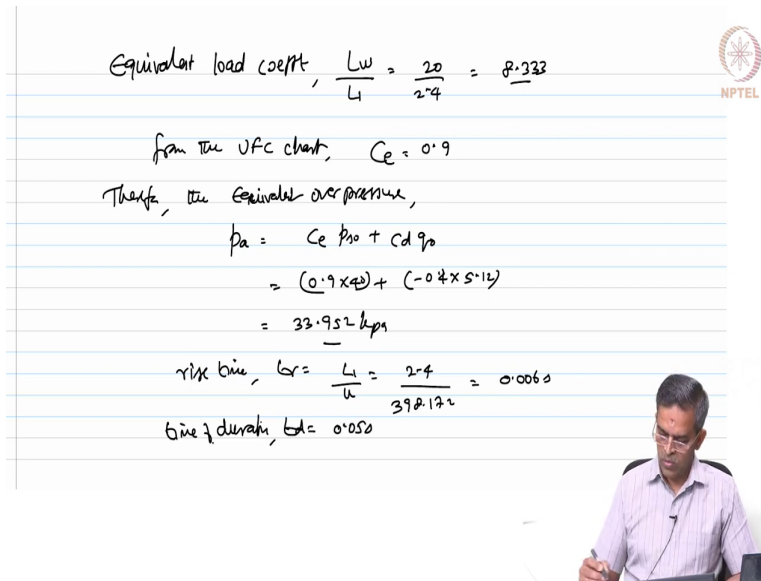 Equivalent load coefft, Lw/L1 = 20/2.4 = 8.333
NPTEL
from the UFC chart, Ce = 0.9
the Equivalent overpressure,
pa = Ce pso + Cd qo
= (0.9 x 40) + (-0.4 x 5.12)
= 33.952 kpa
rise time, tr = L1/u = 2.4/398.172 = 0.006s
time of duration, td = 0.05s